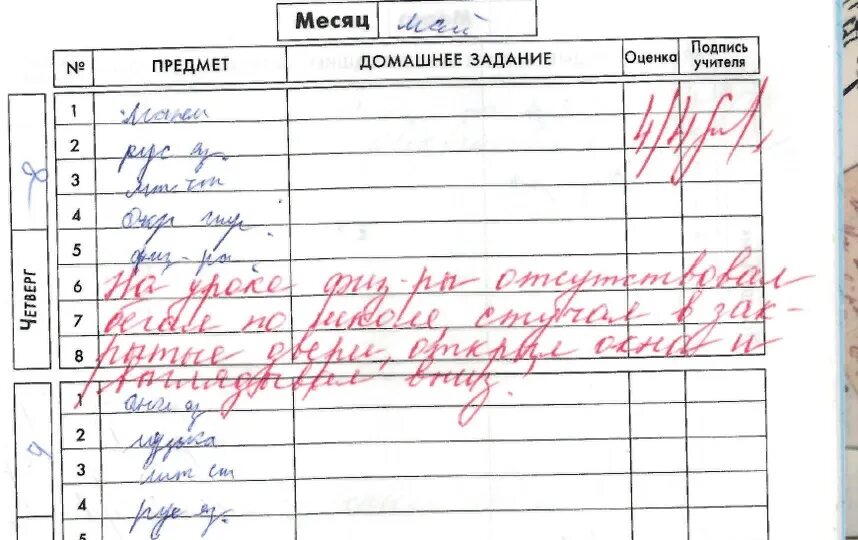 Месяц май
№ ПРЕДМЕТ ДОМАШНЕЕ ЗАДАНИЕ Оценка Подпись учителя
8
ЧЕТВЕРГ
1 Матем
2 рус яз. 4/4
3 лит чт
4 Окр мир
5 физ-ра
6 На уроке физ-ры отсутствовал
7 бегал по школе, стучал в зак-
8 рытые двери, открыл окна и
выглядывал вниз!
9
1 Англ яз
2 музыка
3 лит
4 рус яз.
5